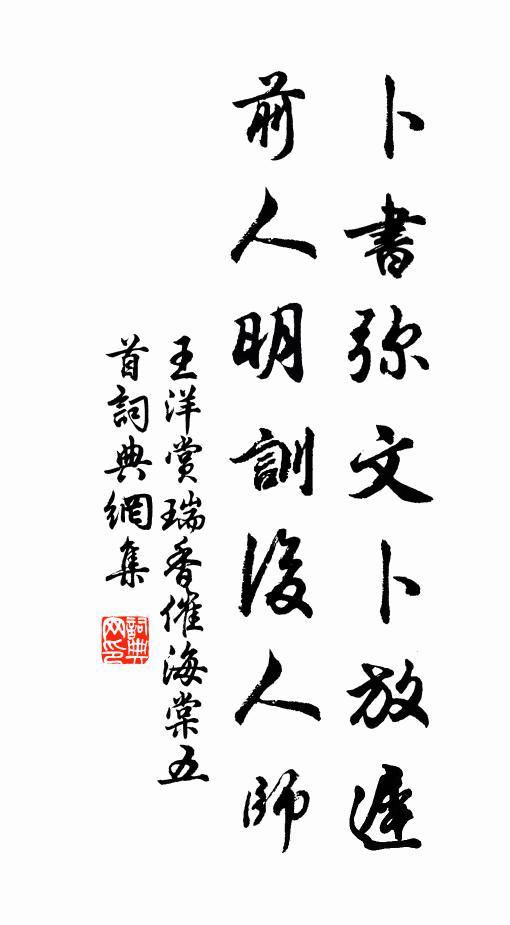 卜書弥文卜放遲
前人明訓後人師
王洋賞瑞香催海棠五
首詞典網集
詞典网印